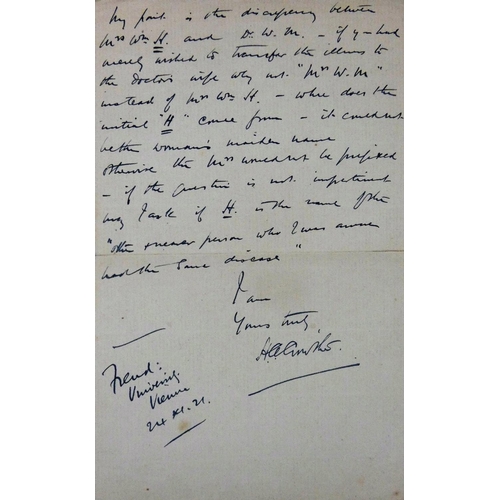 My point is the discrepancy between
Mrs Wm H. and Dr. W. M. – if y– had
merely wished to transfer the illness to
the Doctor's wife why not "Mrs W. M"
instead of Mrs Wm H. – where does the
initial "H" come from – it could not
be the woman's maiden name
otherwise the Mrs would not be prefixed
– if the question is not impertinent
may I ask if H. is the name of the
"other nearer person who I was aware
had the same disease"
I am
Yours truly,
Freud:
University
Vienna
24 XI. 21.